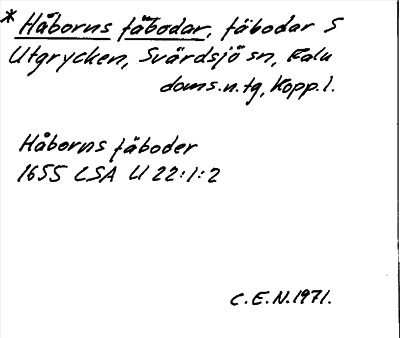 * Håborns fäbodar, fäbodar S
Utgrycken, Svärdsjö sn, Falu
doms.n.tg, Kopp.l.
Håborns fäboder
1655 LSA U 22:1:2
C.E.N.1971.